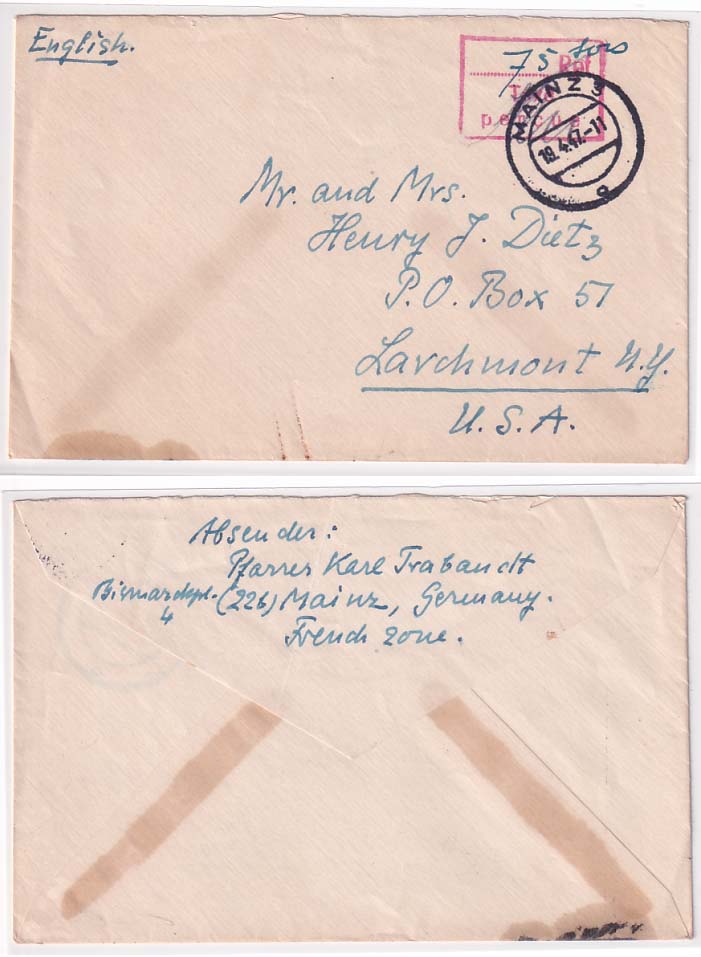 English.
75
Rpf
perçue
MAINZ 3
19.4.47.-11
Mr. and Mrs.
Henry J. Dietz
P.O. Box 51
Larchmont N.Y.
U.S.A.
Absender:
Pfarrer Karl Trabandt
Bismarckpl. (22b) Mainz, Germany.
4
French zone.